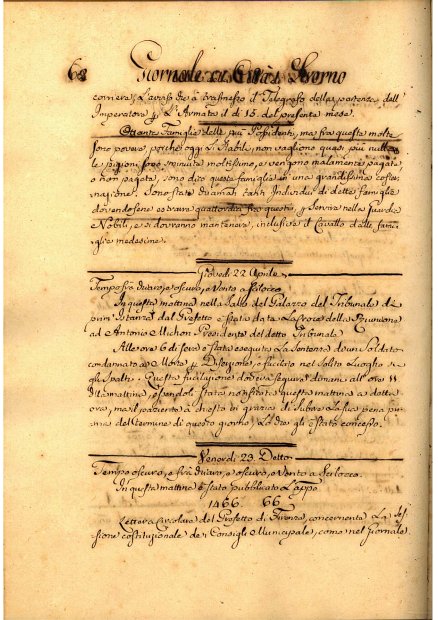 68 Giornale di Città di Livorno
corriera, L'avviso che à trasmesso il Telegrafo della partenza dell'
Imperatore p. L'Armata il dì 15. del presente mese.
Ottanta Famiglie delle più Possidenti, ma fra queste molte
sono povere, poiche oggi Li Stabili, non vagliono quasi più nulla
le pigioni, sono diminuite moltissimo, e vengono malamente pagate
o non pagate, sono dico queste famiglie in una grandissima coster-
nazione. Sono state chiamati tanti Individui di dette famiglie
dovendosene estrarre quattordici fra questi, p. Servire nella Guardia
Nobili, e si dovranno mantenere, inclusive il Cavallo dalle fami-
glie medesime.
Giovedì 22 Aprile
Tempo fra chiaro, e oscuro, e Vento a Scilocco
In questa mattina nella Sala del Palazzo del Tribunale di
prim' Istanza dal Prefetto è stata data La Croce della Riunione
ad Antonio Michon Presidente del detto Tribunale
Alle ore 6 di sera è stata eseguita La Sentenza di un Soldato
condannato a Morte p. Diserzione, e fucilato nel Solito Luogho de-
gli Spalti. Questa fucilazione doveva seguire dinanzi all'ore 11
di mattina, essendoli stata notificata questa mattina a detta
ora, ma il paziente à chiesto in grazia di subire La sua pena pri-
ma del termine di questo giorno, Lo che gli è stato concesso.
Venerdì 23 Detto
Tempo oscuro, e fra chiaro, e oscuro, e Vento a Scilocco
In questa mattina è stato pubblicato L'appo
1466. 66.
Lettera Circolare del Prefetto di Firenze, concernente La Ses-
sione costituzionale de i Consigli Municipale, come nel Giornale